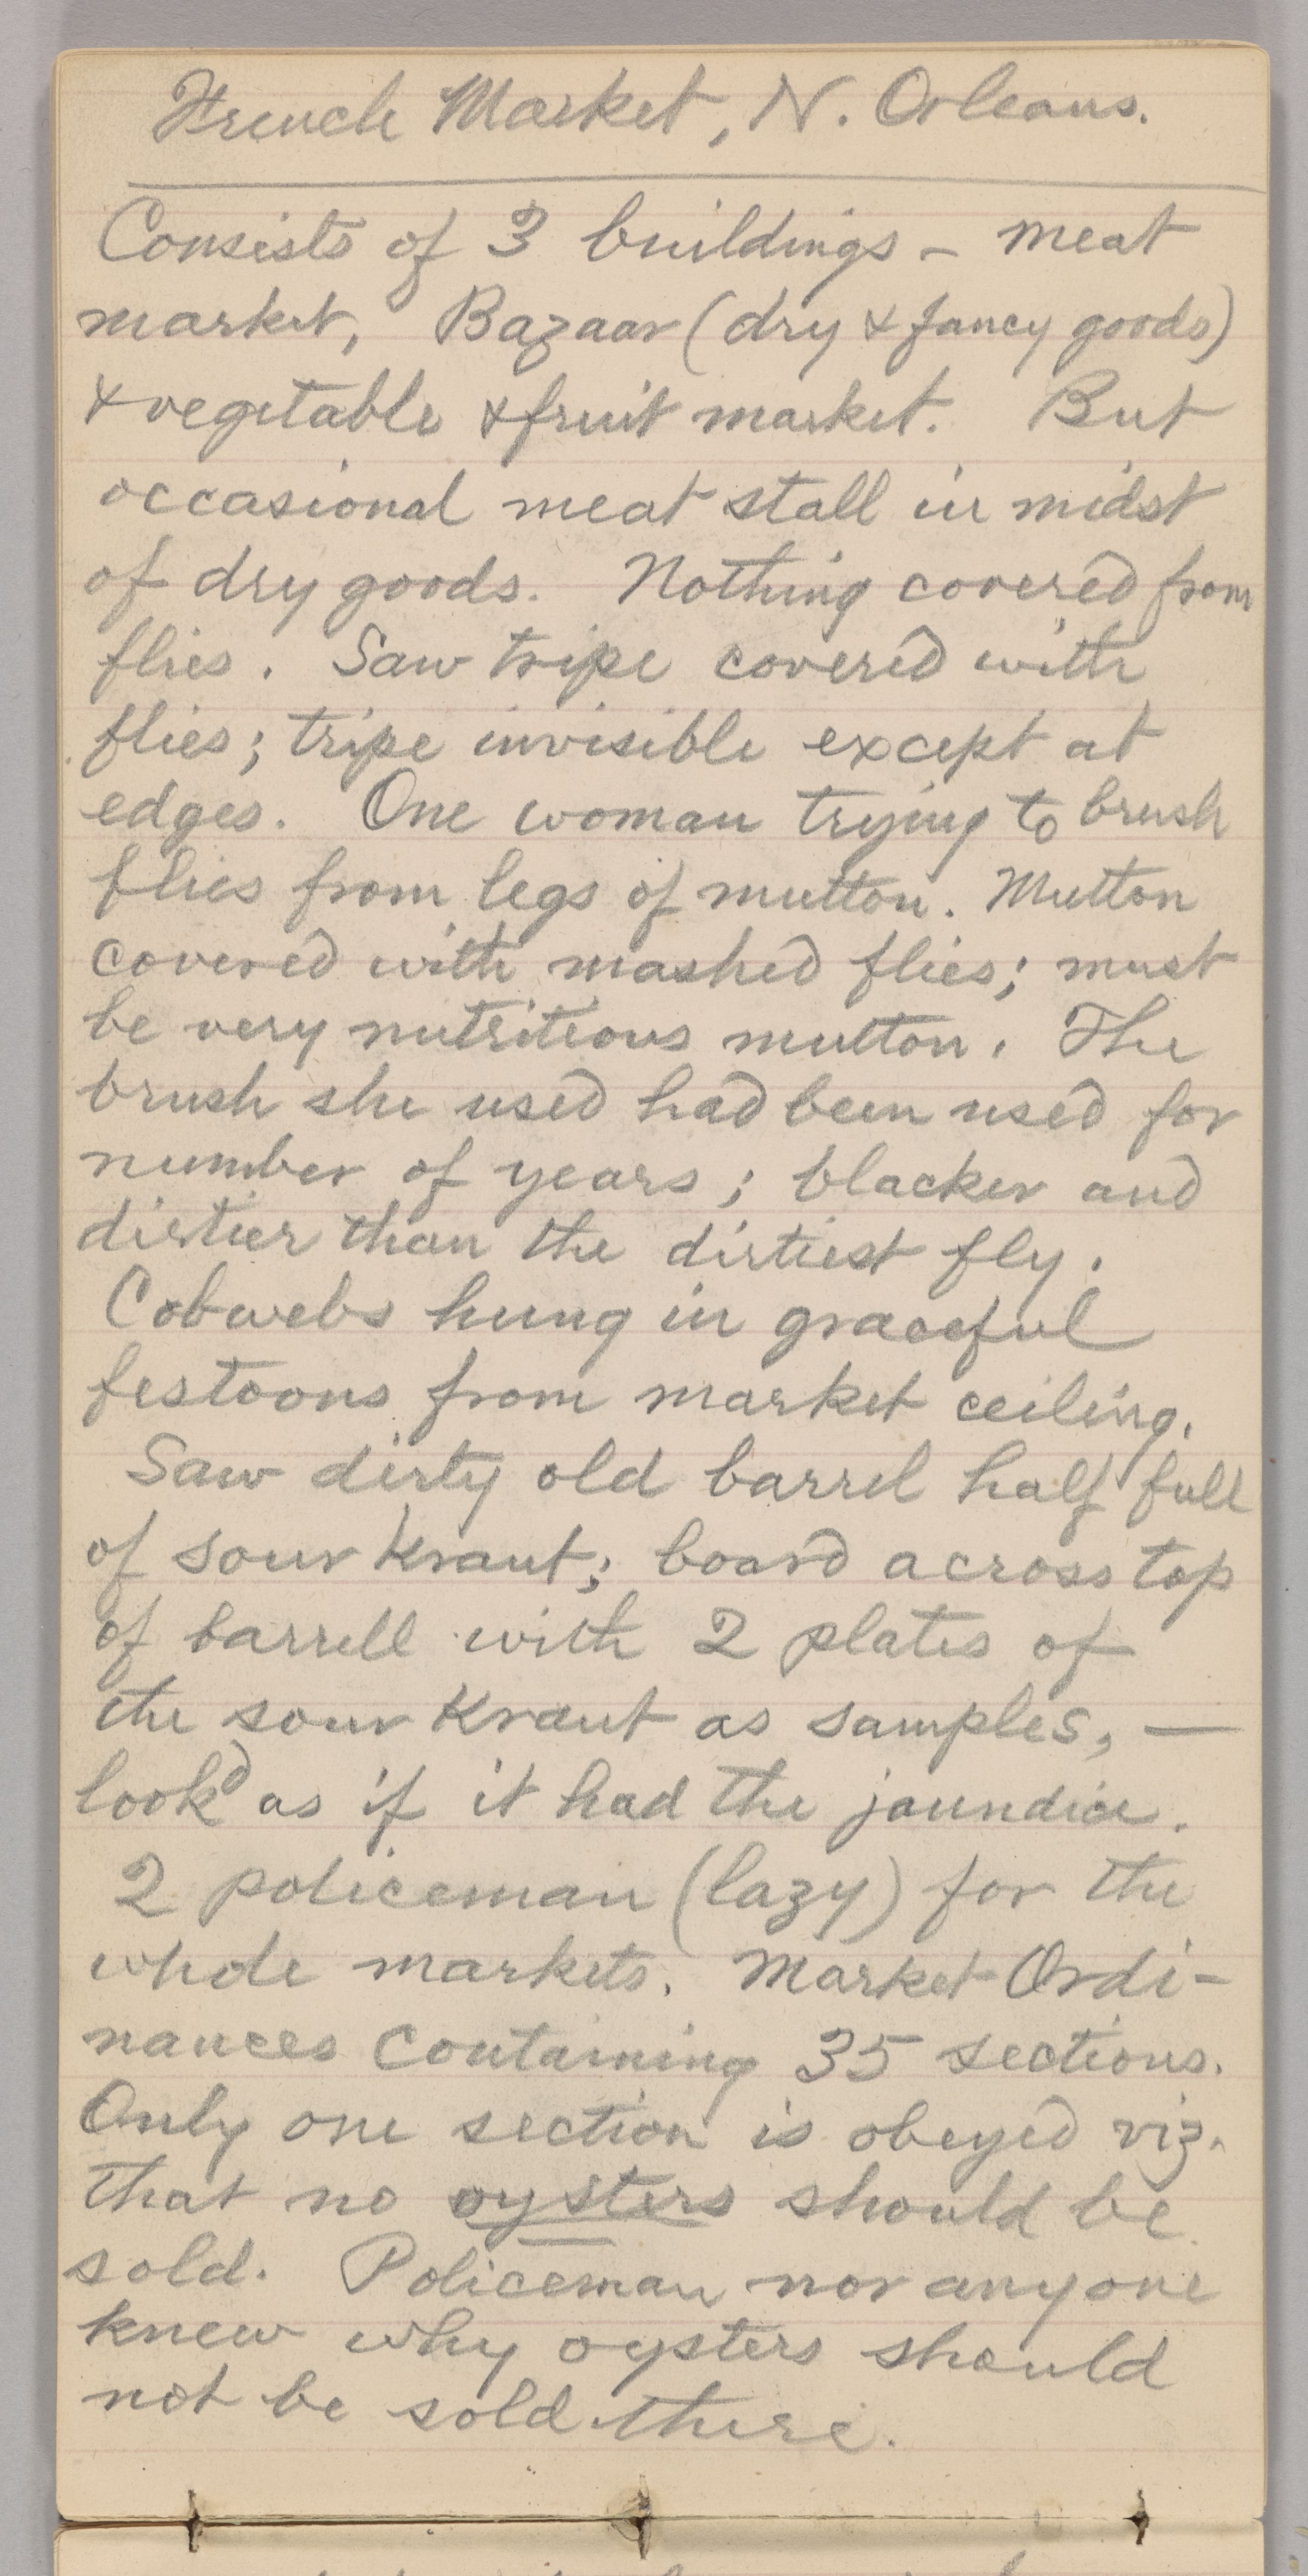 French Market, N. Orleans.
Consists of 3 buildings – meat
market, Bazaar (dry & fancy goods)
& vegetable & fruit market. But
occasional meat stall in midst
of dry goods. Nothing covered from
flies. Saw tripe covered with
flies; tripe invisible except at
edges. One woman trying to brush
flies from legs of mutton. Mutton
covered with mashed flies; must
be very nutritious mutton. The
brush she used had been used for
number of years; blacker and
dirtier than the dirtiest fly.
Cobwebs hung in graceful
festoons from market ceiling.
Saw dirty old barrel half full
of sour Kraut; board across top
of barrell with 2 plates of
the sour Kraut as samples, —
look'd as if it had the jaundice.
2 policeman (lazy) for the
whole markets. Market Ordi-
nances containing 35 sections.
Only one section is obeyed viz.
that no oysters should be
sold. Policeman nor anyone
knew why oysters should
not be sold there.